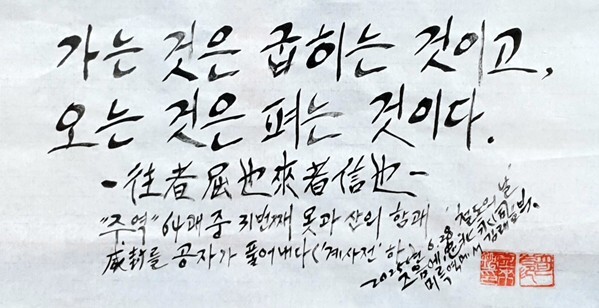 가는 것은 굽히는 것이고,
오는 것은 펴는 것이다.
-往者屈也來者信也-
"주역" 64괘 중 31번째 못과 산의 함괘
咸卦를 공자가 풀어내다('계사전' 하)
2025년 6.28 '철도의 날'
김래호